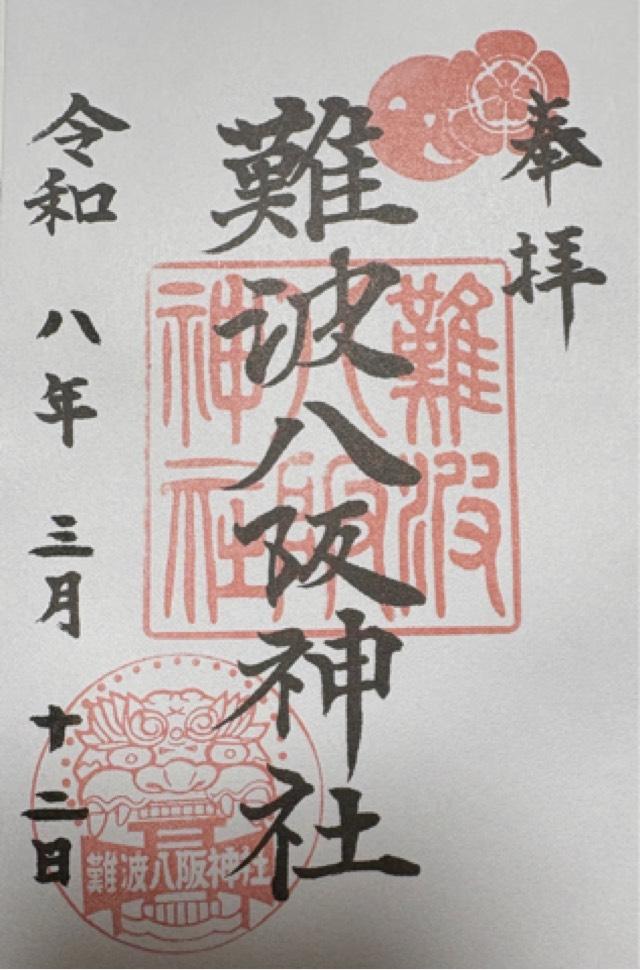 奉拝
難波八阪神社
難波
八阪
神社
令和 八年 三月 十二日
難波八阪神社